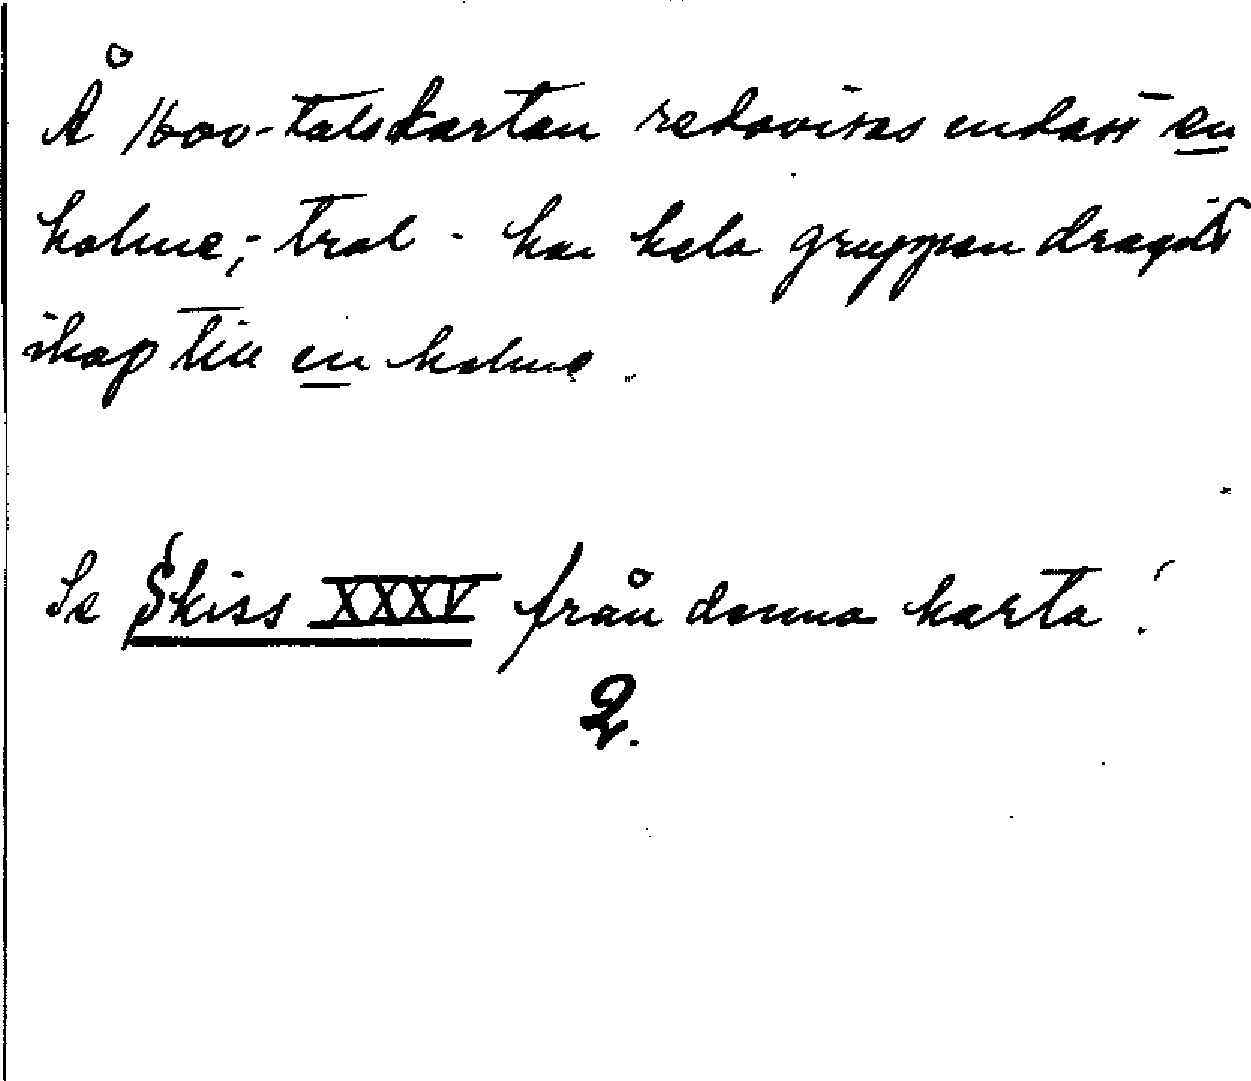 Å 1600-talskartan redovisas endast en
holme; - trol - har hela gruppen dragits
ihop till en holme.
Se Skiss XXXV från denna karta!
2.